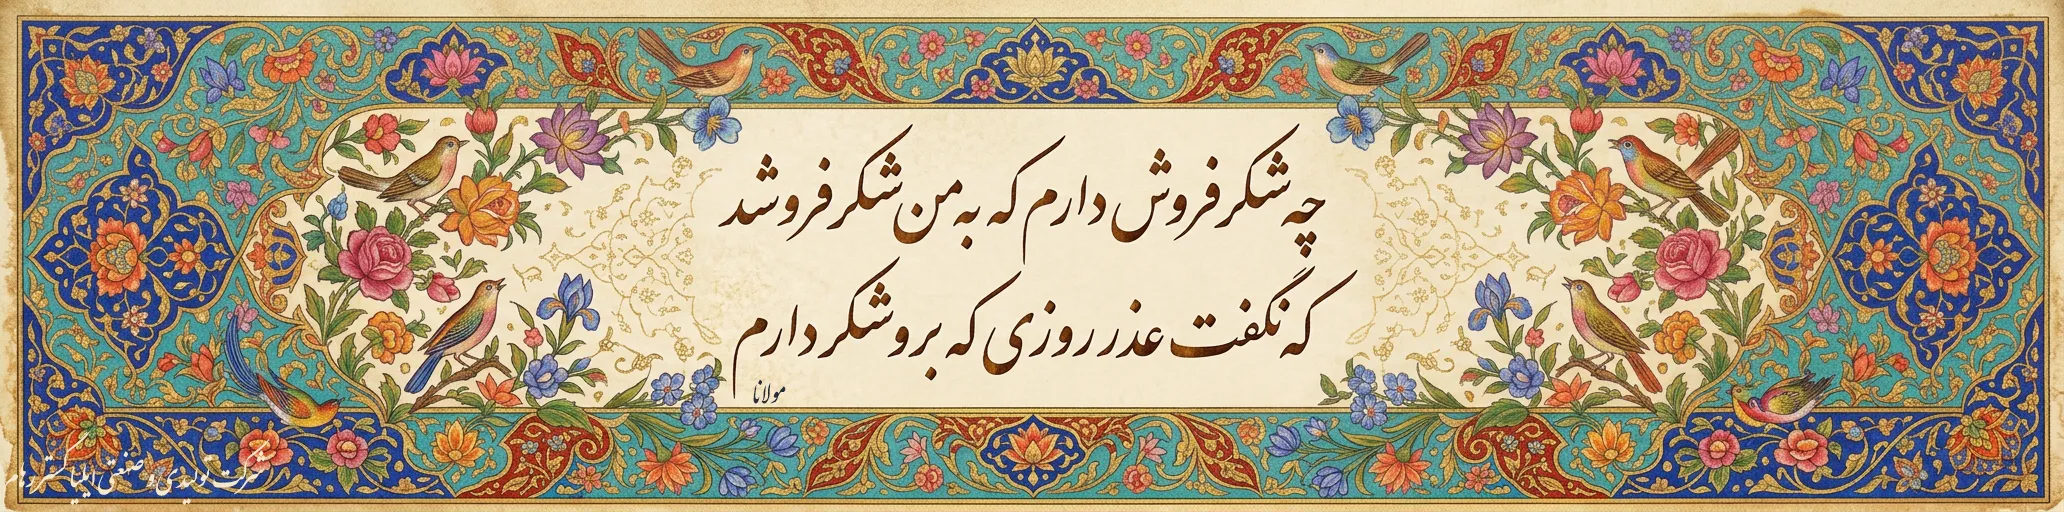 چه شکرفروش دارم که به من شکر فروشد
که نگفت عذر روزی که برو شکر دارم
مولانا
شرکت تولیدی و صنعتی ایلیا گستر رهام